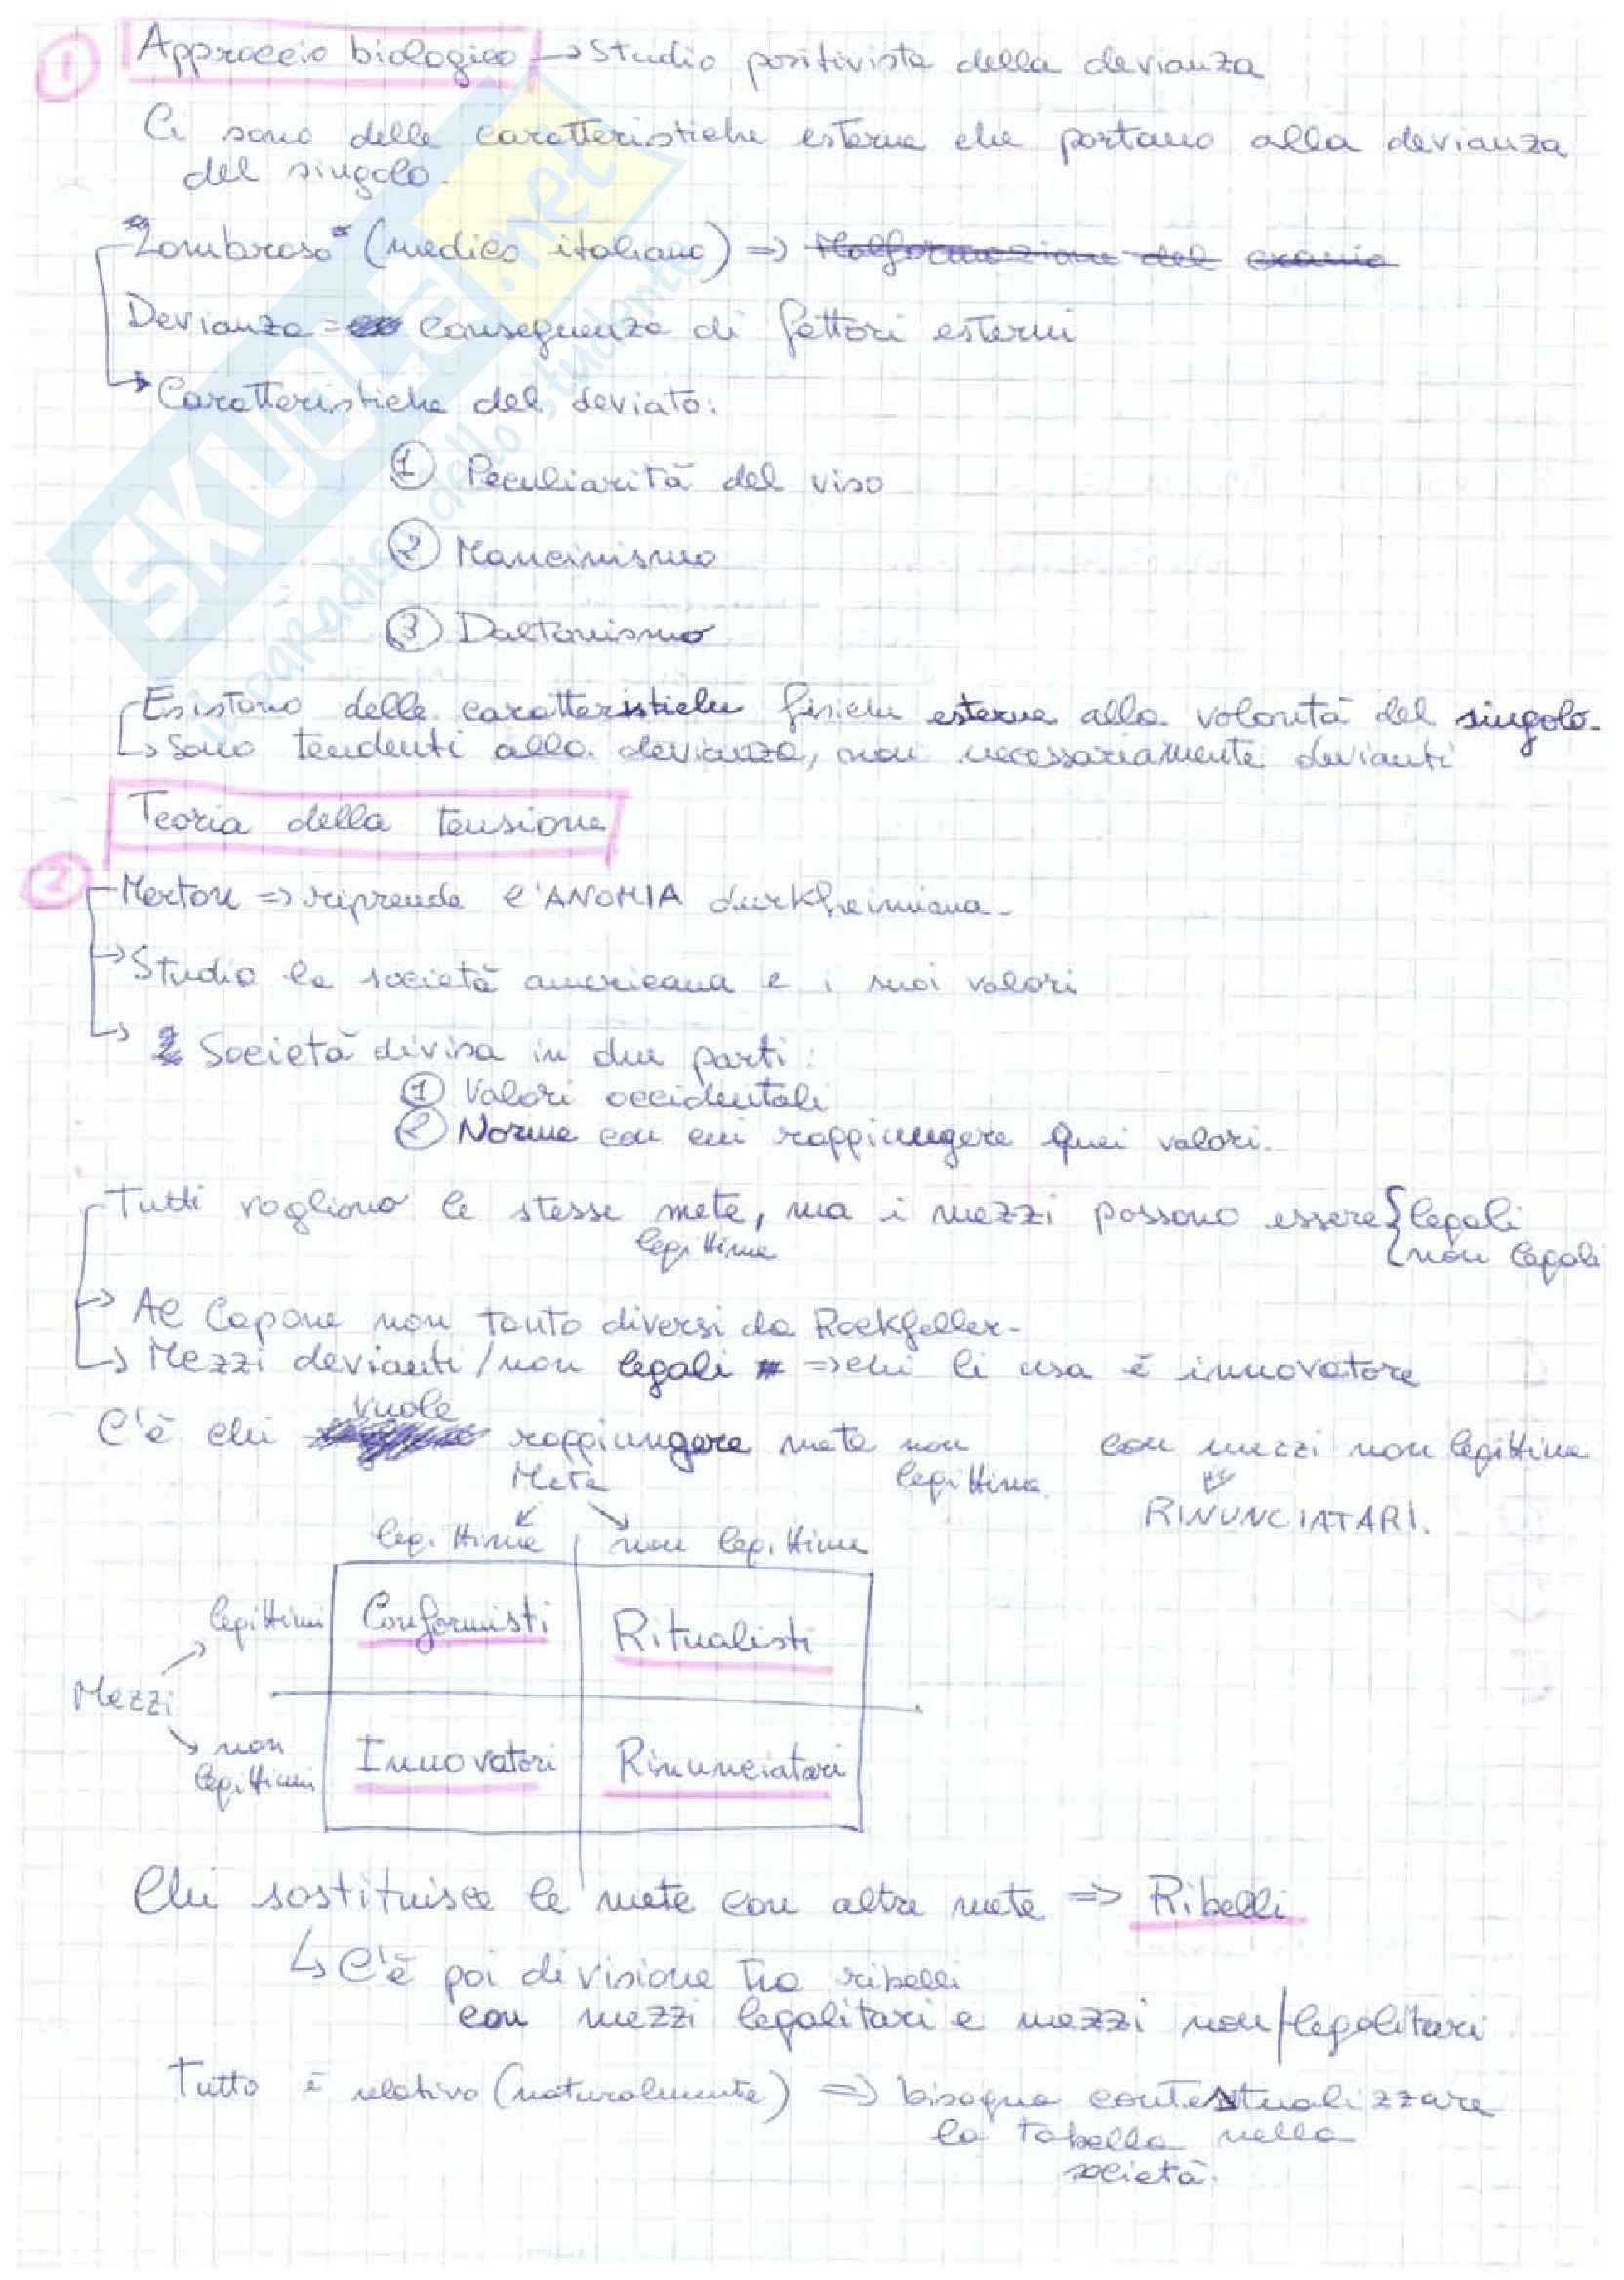 1 Approccio biologico → Studio positivista della devianza
Ci sono delle caratteristiche esterne che portano alla devianza
del singolo.
"Lombroso" (medico italiano) => Malformazione del cranio
Devianza = conseguenza di fattori esterni
→ Caratteristiche del deviato:
① Peculiarità del viso
② Mancinismo
③ Daltonismo
Esistono delle caratteristiche fisiche esterne alla volontà del singolo.
↳ Sono tendenti alla devianza, non necessariamente devianti
Teoria della tensione
2 Merton => riprende l'ANOMIA durkheimiana.
→ Studia la società americana e i suoi valori
→ Società divisa in due parti:
① Valori occidentali
② Norme con cui raggiungere quei valori.
Tutti vogliono le stesse mete, ma i mezzi possono essere { legali
legittime { non legali
→ Al Capone non tanto diversi da Rockfeller.
↳ Mezzi devianti / non legali => chi li usa è innovatore
vuole
C'è chi raggiungere mete non con mezzi non legittime
Mete legittime
RINUNCIATARI.
legittime non legittime
legittimi Conformisti Ritualisti
Mezzi
non Innovatori Rinunciatari
legittimi
Chi sostituisce le mete con altre mete => Ribelli
↳ C'è poi divisione tra ribelli
con mezzi legalitari e mezzi non legalitari
Tutto è relativo (naturalmente) => bisogna contestualizzare
la tabella nella
società.
SKUOLA.net
il paradiso dello studente